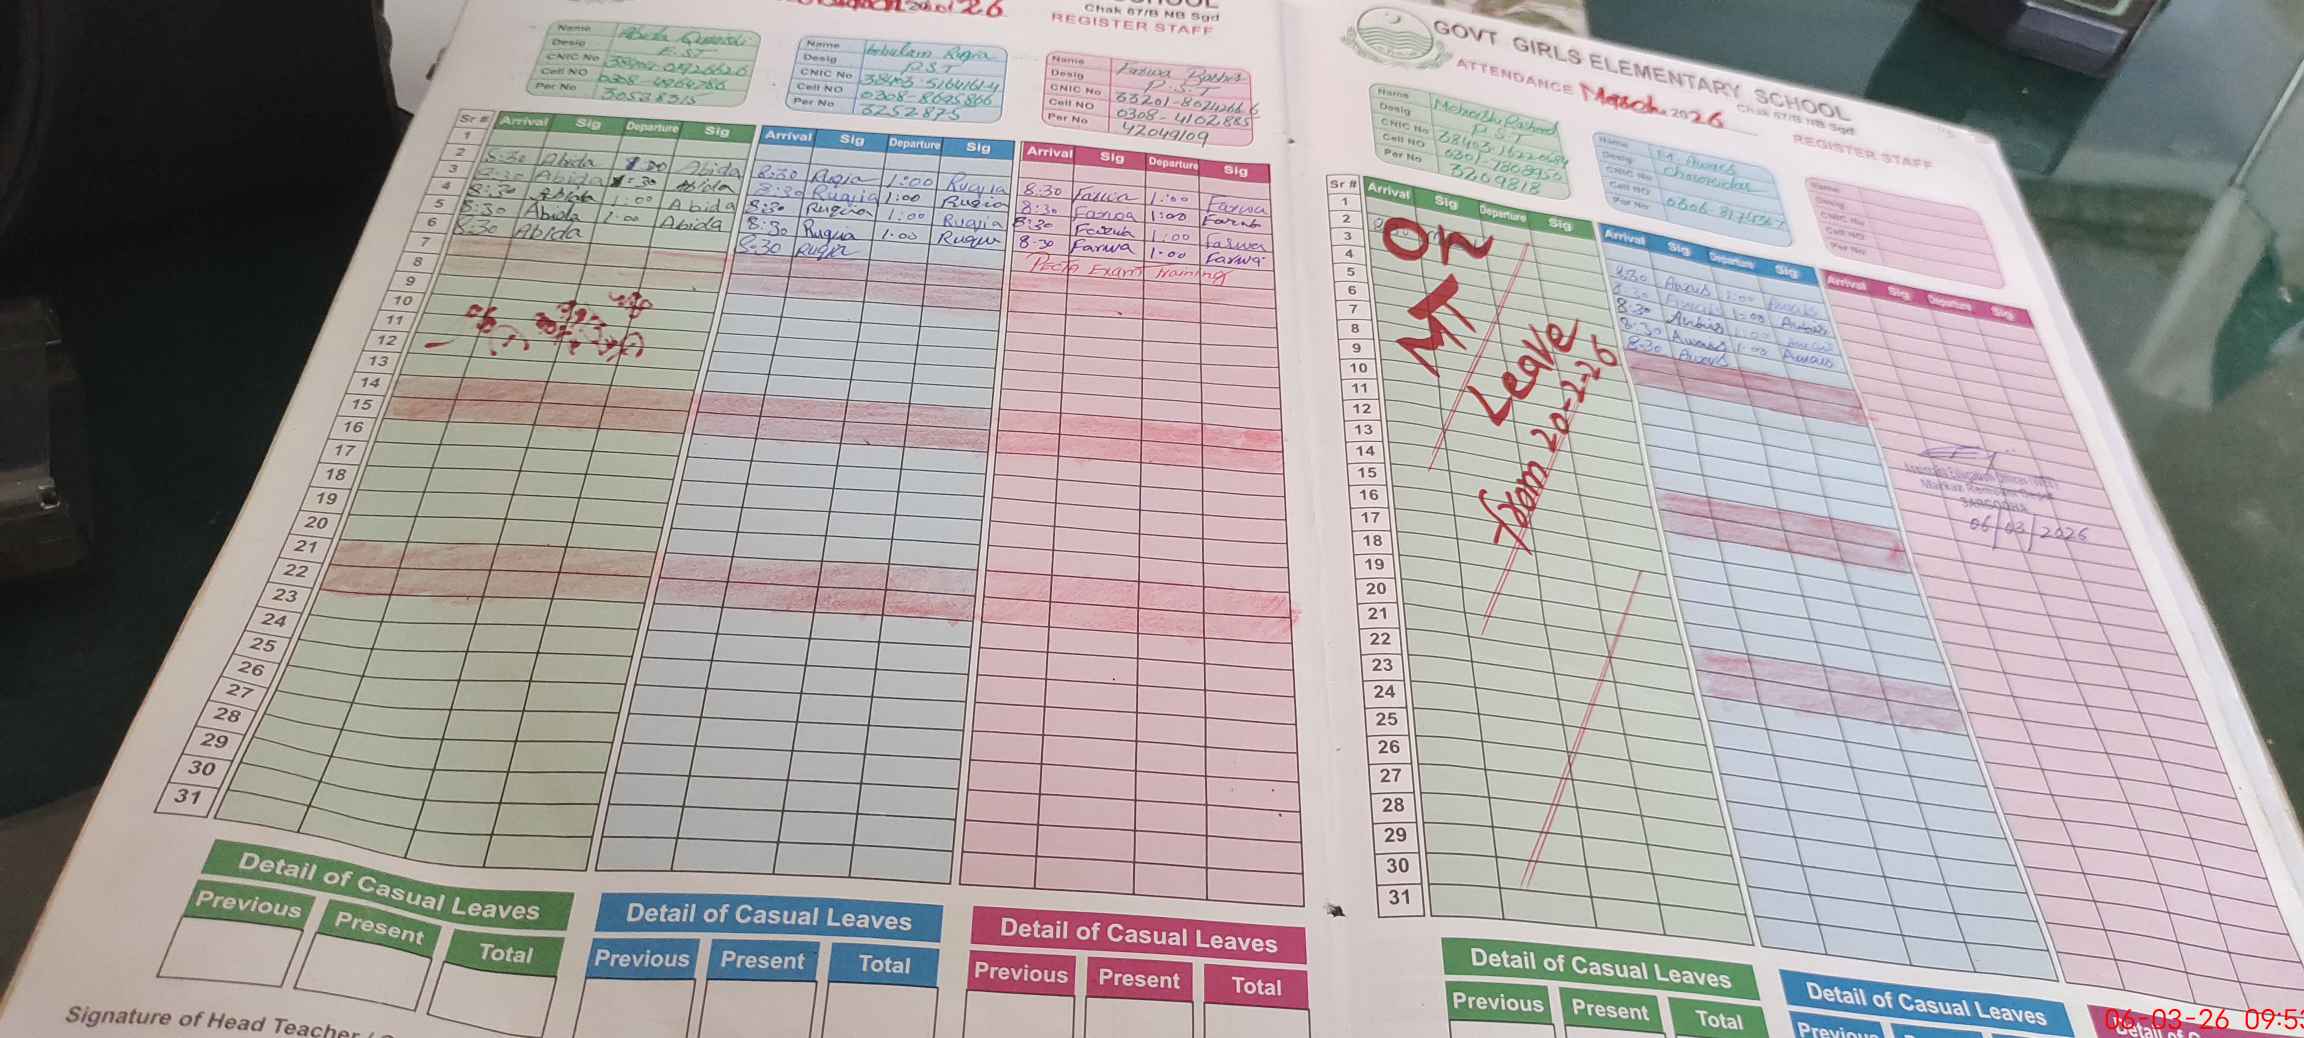 SCHOOL
2026
Chak 67/B NB Sgd
REGISTER STAFF
Name Abida
Desig E.ST
CNIC No
Cell NO
Per No 30528315
Name Rugia
Desig P.S.T
CNIC No
Cell NO 0308-8695866
Per No 3252875
Name Farwa
Desig P.S.T
CNIC No 33201-8024266 6
Cell NO 0308-4102885
Per No 42049109
Sr # Arrival Sig Departure Sig Arrival Sig Departure Sig Arrival Sig Departure Sig
1
2 8:30 Abida Abida 8:30 Ruqia 1:00 Ruqia 8:30 Farwa 1:00 Farwa
3 8:30 Abida Abida 8:30 Ruqia 1:00 Ruqia 8:30 Farwa 1:00 Farwa
4 8:30 Abida 1:00 Abida 8:30 Ruqia 1:00 Ruqia 8:30 Farwa 1:00 Farwa
5 8:30 Abida 1:00 Abida 8:30 Ruqia 1:00 Ruqia 8:30 Farwa 1:00 Farwa
6 8:30 Abida 8:30 Ruqia Exam Training
7
8
9
10
11
12
13
14
15
16
17
18
19
20
21
22
23
24
25
26
27
28
29
30
31
Detail of Casual Leaves Detail of Casual Leaves Detail of Casual Leaves
Previous Present Total Previous Present Total Previous Present Total
Signature of Head Teacher /
GOVT GIRLS ELEMENTARY SCHOOL
ATTENDANCE March 2026 Chak 67/B NB Sgd
REGISTER STAFF
Name Rasheed
Desig P.S.T
CNIC No
Cell NO 0301-7808950
Per No 3209818
Name M. Awais
Desig Chowkidar
CNIC No
Cell NO
Per No
Name
Desig
CNIC No
Cell NO
Per No
Sr # Arrival Sig Departure Sig Arrival Sig Departure Sig Arrival Sig Departure Sig
1
2
3
4
5
6
7
8
9
10
11
12
13
14
15
16
17
18
19
20
21
22
23
24
25
26
27
28
29
30
31
On
MT
Leave
from 20-2-26
8:30 Awais 1:00 Awais
8:30 Awais 1:00 Awais
8:30 Awais 1:00 Awais
8:30 Awais 1:00 Awais
8:30 Awais
SARGODHA
06/03/2026
Detail of Casual Leaves Detail of Casual Leaves
Previous Present Total Previous
06-03-26 09:53